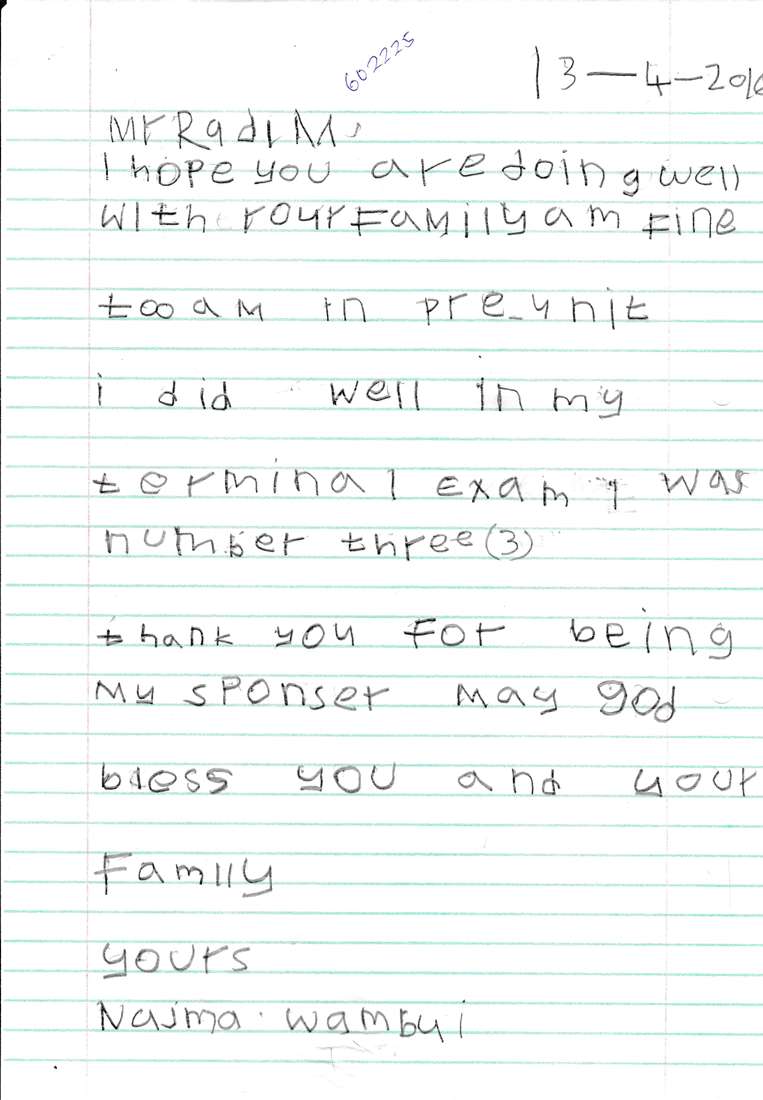 602225
13-4-2016
Mr Radim.
I hope you are doing well
With rour Family am Fine
too am in pre-unit
i did well in my
terminal exam I was
number three (3)
thank you For being
My sponser May god
bless you and your
Family
yours
Najma. wambui